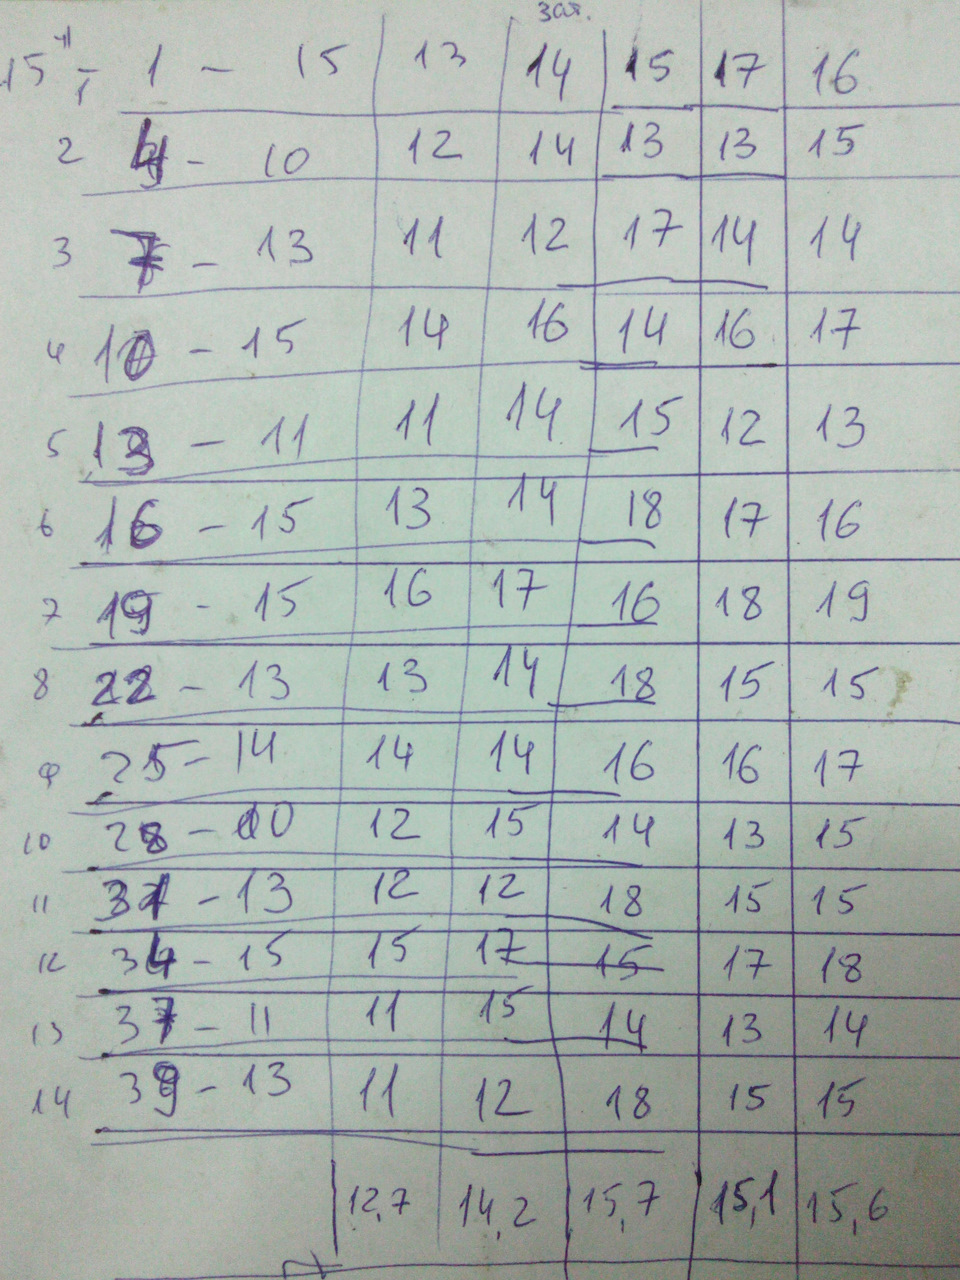 зат.
15 - 1 - 15 13 14 15 17 16
2 4 - 10 12 14 13 13 15
3 7 - 13 11 12 17 14 14
4 10 - 15 14 16 14 16 17
5 13 - 11 11 14 15 12 13
6 16 - 15 13 14 18 17 16
7 19 - 15 16 17 16 18 19
8 22 - 13 13 14 18 15 15
9 25 - 14 14 14 16 16 17
10 28 - 10 12 15 14 13 15
11 31 - 13 12 12 18 15 15
12 34 - 15 15 17 15 17 18
13 37 - 11 11 15 14 13 14
14 39 - 13 11 12 18 15 15
12,7 14,2 15,7 15,1 15,6